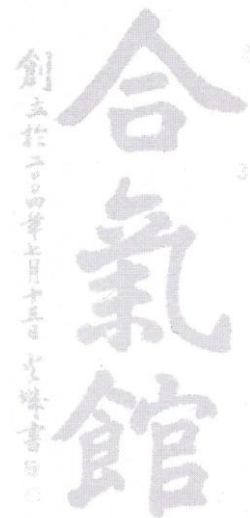 合氣館
創立於二〇〇四年七月十三日
書